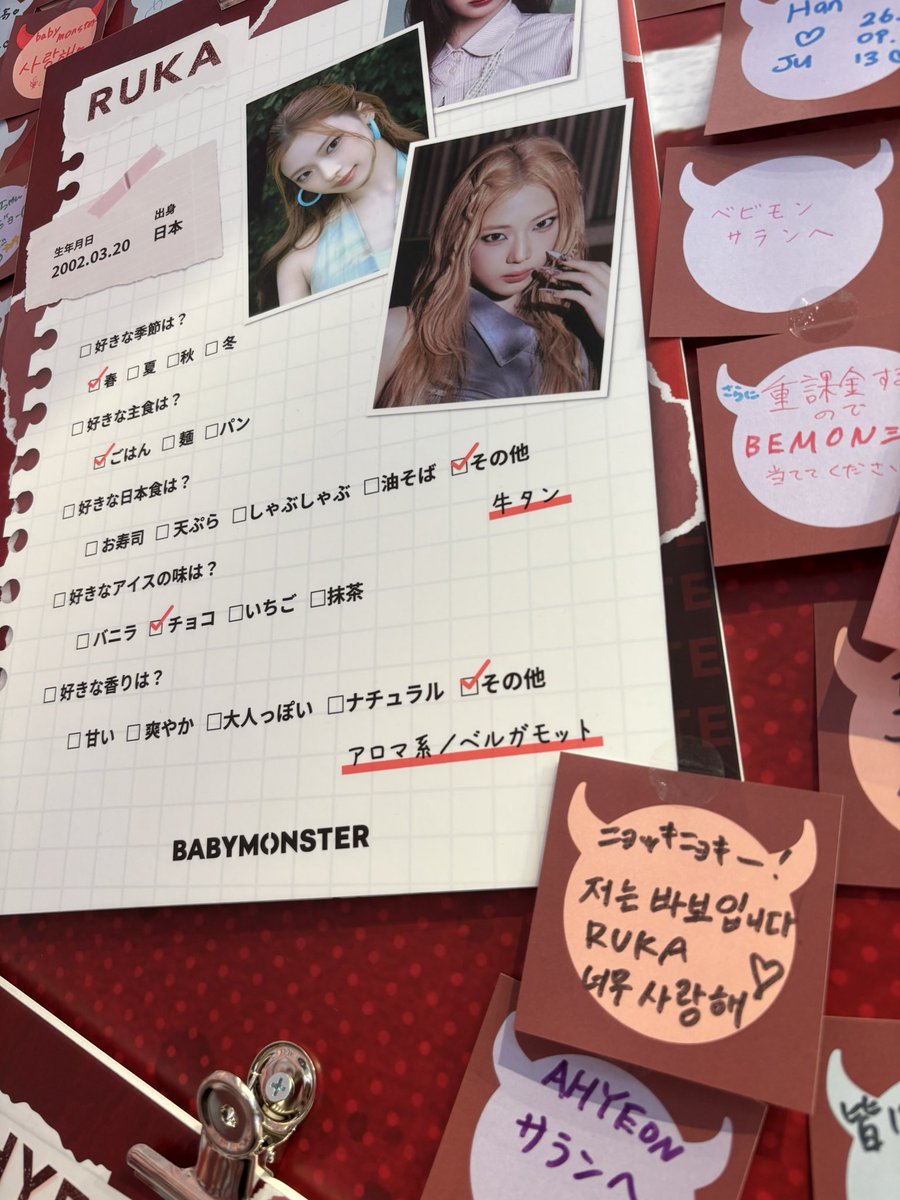 baby monster
사랑해
RUKA
生年月日
2002.03.20
出身
日本
□好きな季節は？
☑春 □夏 □秋 □冬
□好きな主食は？
☑ごはん □麺 □パン
□好きな日本食は？
□お寿司 □天ぷら □しゃぶしゃぶ □油そば ☑その他
牛タン
□好きなアイスの味は？
□バニラ ☑チョコ □いちご □抹茶
□好きな香りは？
□甘い □爽やか □大人っぽい □ナチュラル ☑その他
アロマ系／ベルガモット
BABYMONSTER
Han
♡
Ju
26.
09.
13
ベビモン
サランへ
さらに重課金する
ので
BEMON
当ててくださ
ニョッキニョキー！
저는 바보입니다
RUKA
너무 사랑해♡
AHYEON
サランへ
皆